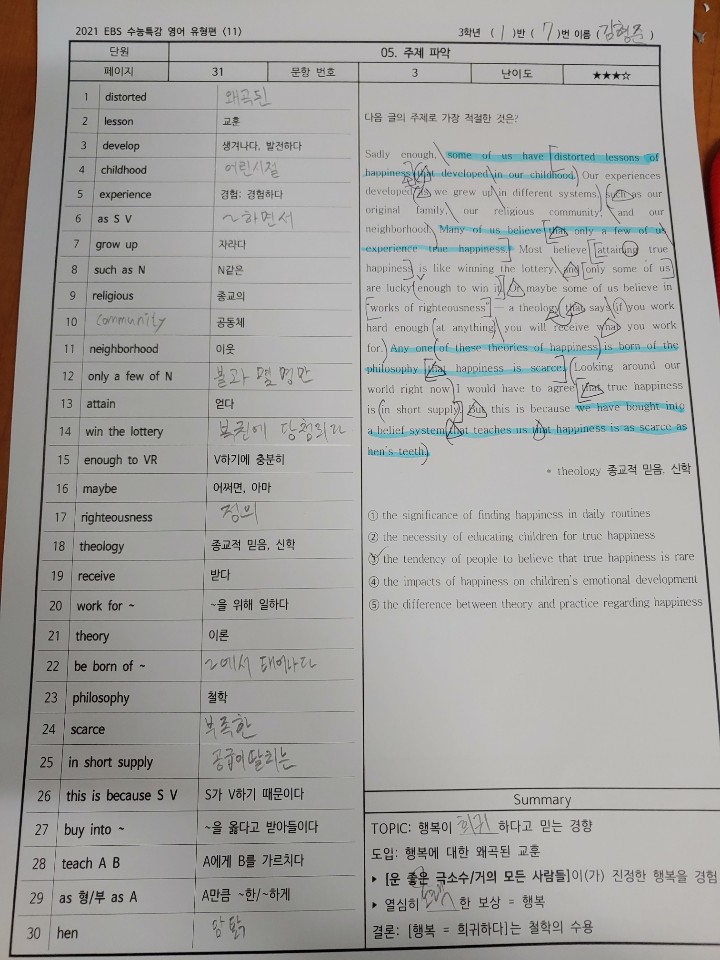 2021 EBS 수능특강 영어 유형편 <11>
3학년 ( 1 )반 ( 7 )번 이름 ( )
단원
05. 주제 파악
페이지
31
문항 번호
3
난이도
★★★☆
1 distorted 왜곡된
2 lesson 교훈
3 develop 생겨나다, 발전하다
4 childhood 어린시절
5 experience 경험; 경험하다
6 as S V ~하면서
7 grow up 자라다
8 such as N N같은
9 religious 종교의
10 community 공동체
11 neighborhood 이웃
12 only a few of N 불과 몇 명만
13 attain 얻다
14 win the lottery 복권에 당첨되다
15 enough to VR V하기에 충분히
16 maybe 어쩌면, 아마
17 righteousness 정의
18 theology 종교적 믿음, 신학
19 receive 받다
20 work for ~ ~을 위해 일하다
21 theory 이론
22 be born of ~ ~에서 태어나다
23 philosophy 철학
24 scarce 부족한
25 in short supply 공급이 딸리는
26 this is because S V S가 V하기 때문이다
27 buy into ~ ~을 옳다고 받아들이다
28 teach A B A에게 B를 가르치다
29 as 형/부 as A A만큼 ~한/~하게
30 hen 암탉
다음 글의 주제로 가장 적절한 것은?
Sadly enough, some of us have distorted lessons of
happiness that developed in our childhood. Our experiences
developed as we grew up in different systems, such as our
original family, our religious community, and our
neighborhood. Many of us believe that only a few of us
experience true happiness. Most believe attaining true
happiness is like winning the lottery, and only some of us
are lucky enough to win it. Or maybe some of us believe in
"works of righteousness" — a theology that says if you work
hard enough at anything, you will receive what you work
for. Any one of these theories of happiness is born of the
philosophy that happiness is scarce. Looking around our
world right now, I would have to agree that true happiness
is in short supply. But this is because we have bought into
a belief system that teaches us that happiness is as scarce as
hen's teeth.
* theology 종교적 믿음, 신학
① the significance of finding happiness in daily routines
② the necessity of educating children for true happiness
③ the tendency of people to believe that true happiness is rare
④ the impacts of happiness on children's emotional development
⑤ the difference between theory and practice regarding happiness
Summary
TOPIC: 행복이 희귀 하다고 믿는 경향
도입: 행복에 대한 왜곡된 교훈
▸ [운 좋은 극소수/거의 모든 사람들]이(가) 진정한 행복을 경험
▸ 열심히 한 보상 = 행복
결론: [행복 = 희귀하다]는 철학의 수용